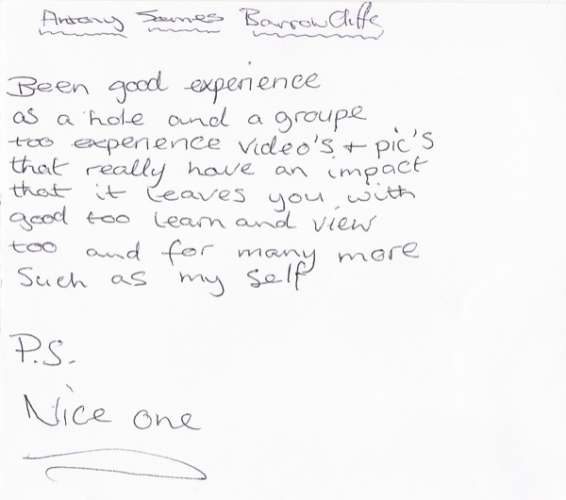 Antony James BarrowCliffe
Been good experience
as a hole and a groupe
too experience video's + pic's
that really have an impact
that it leaves you with
good too learn and view
too and for many more
Such as my self
P.S.
Nice one